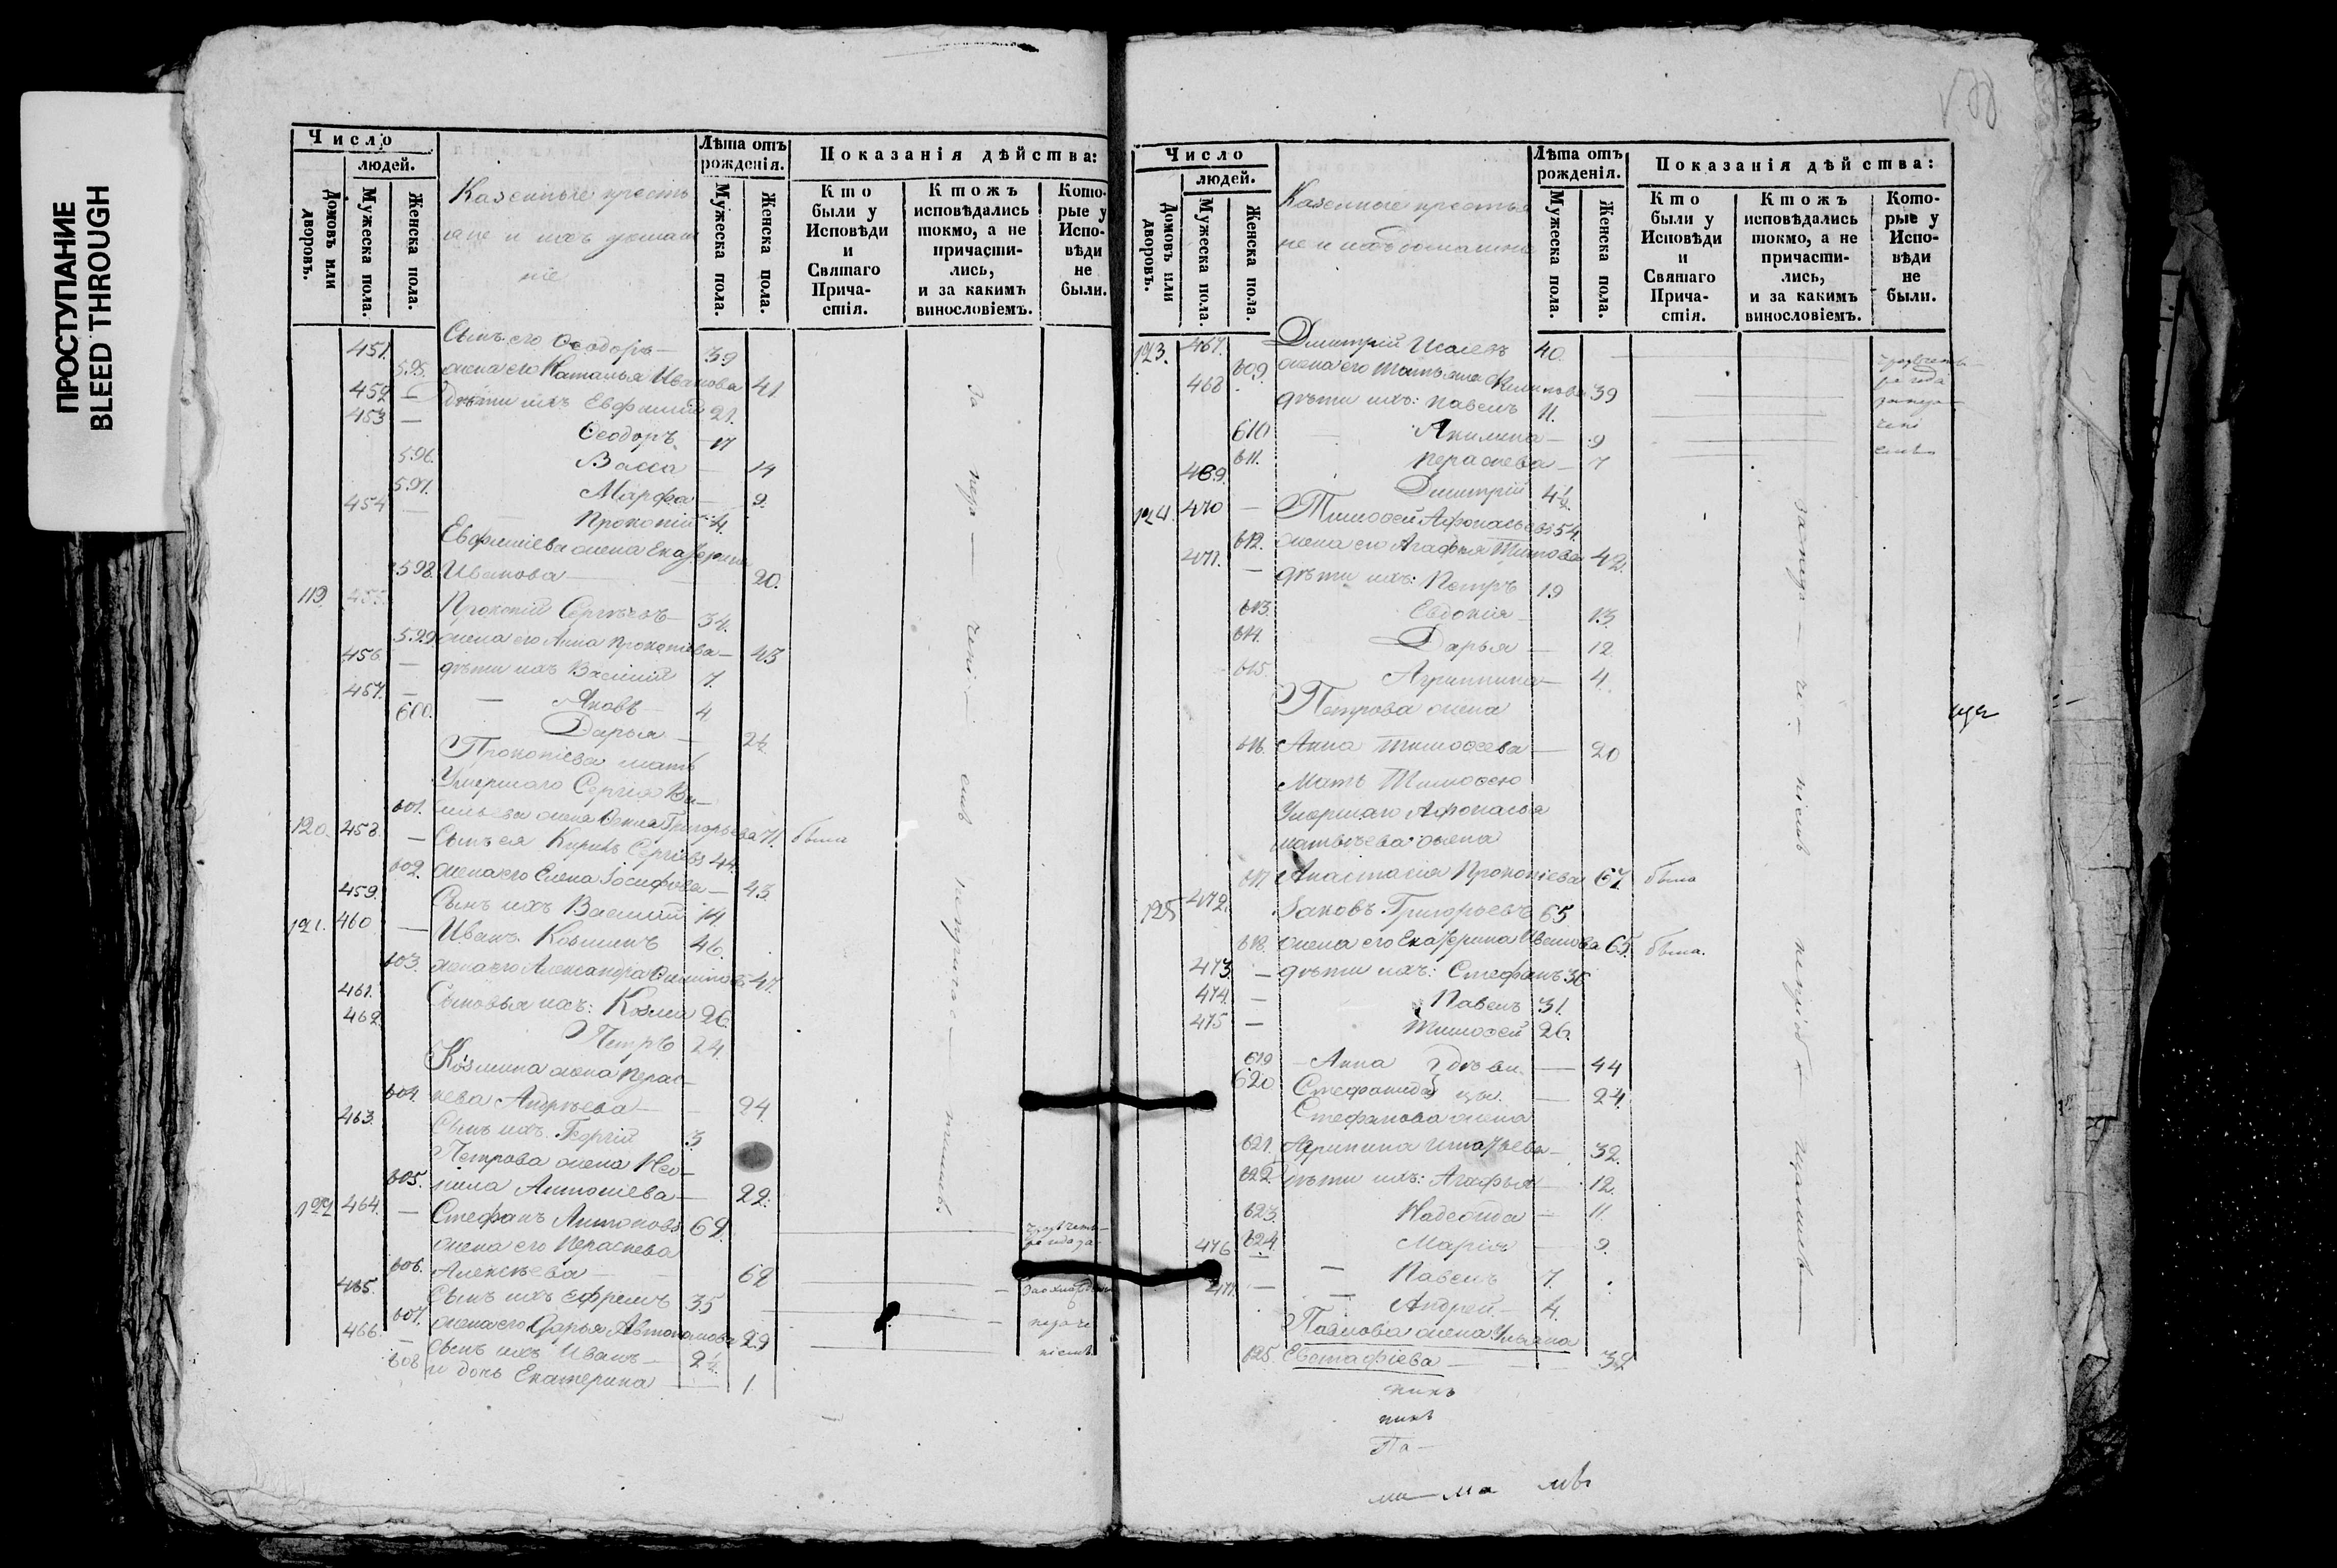 ПРОСТУПАНИЕ
BLEED THROUGH
Число
людей.
Домовъ или дворовъ.
Мужеска пола.
Женска пола.
Казенные кресть
яне и ихъ домаш
ніе
Лѣта отъ рожденія.
Мужеска пола.
Женска пола.
Показанія дѣйства:
Кто были у Исповѣди и Святаго Прича- стія.
Ктожъ исповѣдались токмо, а не причасти- лись, и за какимъ винословіемъ.
Кото- рые у Испо- вѣди не были.
451. Сынъ его Ѳеодоръ — 39
595. жена его Наталья Иванова 41
452 — Дѣти ихъ Евфимій 21.
453 — Ѳеодоръ — 17
596. Васса — 14
597. Марфа — 9.
454 — Прокопій 4.
Евфиміева жена Екатерина
598. Иванова — 20.
119 455. Прокопій Сергѣевъ — 34.
599 жена его Анна Прокопіева — 43
456 — дѣти ихъ Василій 7.
457. — Яковъ — 4
600. Дарья — 2½
Прокопіева мать
Умершаго Сергія Ва-
601. сильева жена Анна Григорьева 71. была
120. 458. — Сынъ ея Кирилъ Сергіевъ 44.
602. жена его Елена Іосифова — 43
459. Сынъ ихъ Василій 14.
121. 460 — Иванъ Козминъ 46.
603. жена его Александра 47.
461. Сыновья ихъ: Козма 26.
462. Петръ 24.
Козмина жена Парас-
604. кева Андрѣева — 24
463. Сынъ ихъ Георгій 3
Петрова жена Нео-
605. нила Антоніева — 22.
122 464. — Стефанъ Антоновъ 69.
жена его Параскева
606. Алексѣева — 62
465. Сынъ ихъ Ефремъ 35
607. жена его Дарья Автономова 29
466. — сынъ ихъ Иванъ — 2½
608 и дочь Екатерина — 1.
Число
людей.
Домовъ или дворовъ.
Мужеска пола.
Женска пола.
Казенные крестья
не и ихъ домашніе
Лѣта отъ рожденія.
Мужеска пола.
Женска пола.
Показанія дѣйства:
Кто были у Исповѣди и Святаго Прича- стія.
Ктожъ исповѣдались токмо, а не причасти- лись, и за какимъ винословіемъ.
Кото- рые у Испо- вѣди не были.
123. 467. Димитрій Исаевъ 40.
609. жена его Татьяна Филипова 39
468 дѣти ихъ: Павелъ 11.
610 Акилина — 9
611. Параскева — 7
469. Димитрій 4½
124. 470 — Тимоѳей Аѳонасьевъ 54.
612. жена его Агафья Титова 42.
471. — дѣти ихъ: Петръ 19
613. Евдокія — 13.
614. Дарья — 12
615. Агриппина — 4.
Петрова жена
616. Анна Тимоѳеева — 20
Мать Тимоѳею
Умершаго Аѳонасья
матвѣева жена
617 Анастасія Прокопіева 67. была
125 472. Іаковъ Григорьевъ 65
618. жена его Екатерина Иванова 65. была.
473. — дѣти ихъ: Стефанъ 36
474. — Павелъ 31.
475 — Тимоѳей 26.
619 — Анна дѣви — 44
620 Стефанида цы. — 24.
Стефанова жена
621. Агрипина Игнатьева — 32.
622. дѣти ихъ: Агафья — 12.
623. Надежда — 11.
624. Марія — 9.
476 — Павелъ 7.
477. — Андрей — 4.
Павлова жена Ульяна
625. Евстафіева — 32